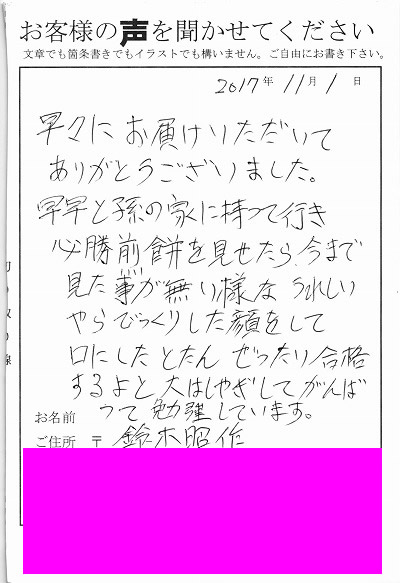 お客様の声を聞かせてください
文章でも箇条書きでもイラストでも構いません。ご自由にお書き下さい。
2017年 11月 1日
早々にお届けいただいて
ありがとうございました。
早早と孫の家に持って行き
必勝前餅を見せたら、今まで
見た事が無い様な うれしい
やらびっくりした顔をして
口にしたとたん ぜったい合格
するよと大はしゃぎしてがんば
って勉強しています。
お名前
ご住所 〒 鈴木昭作
切り取り線